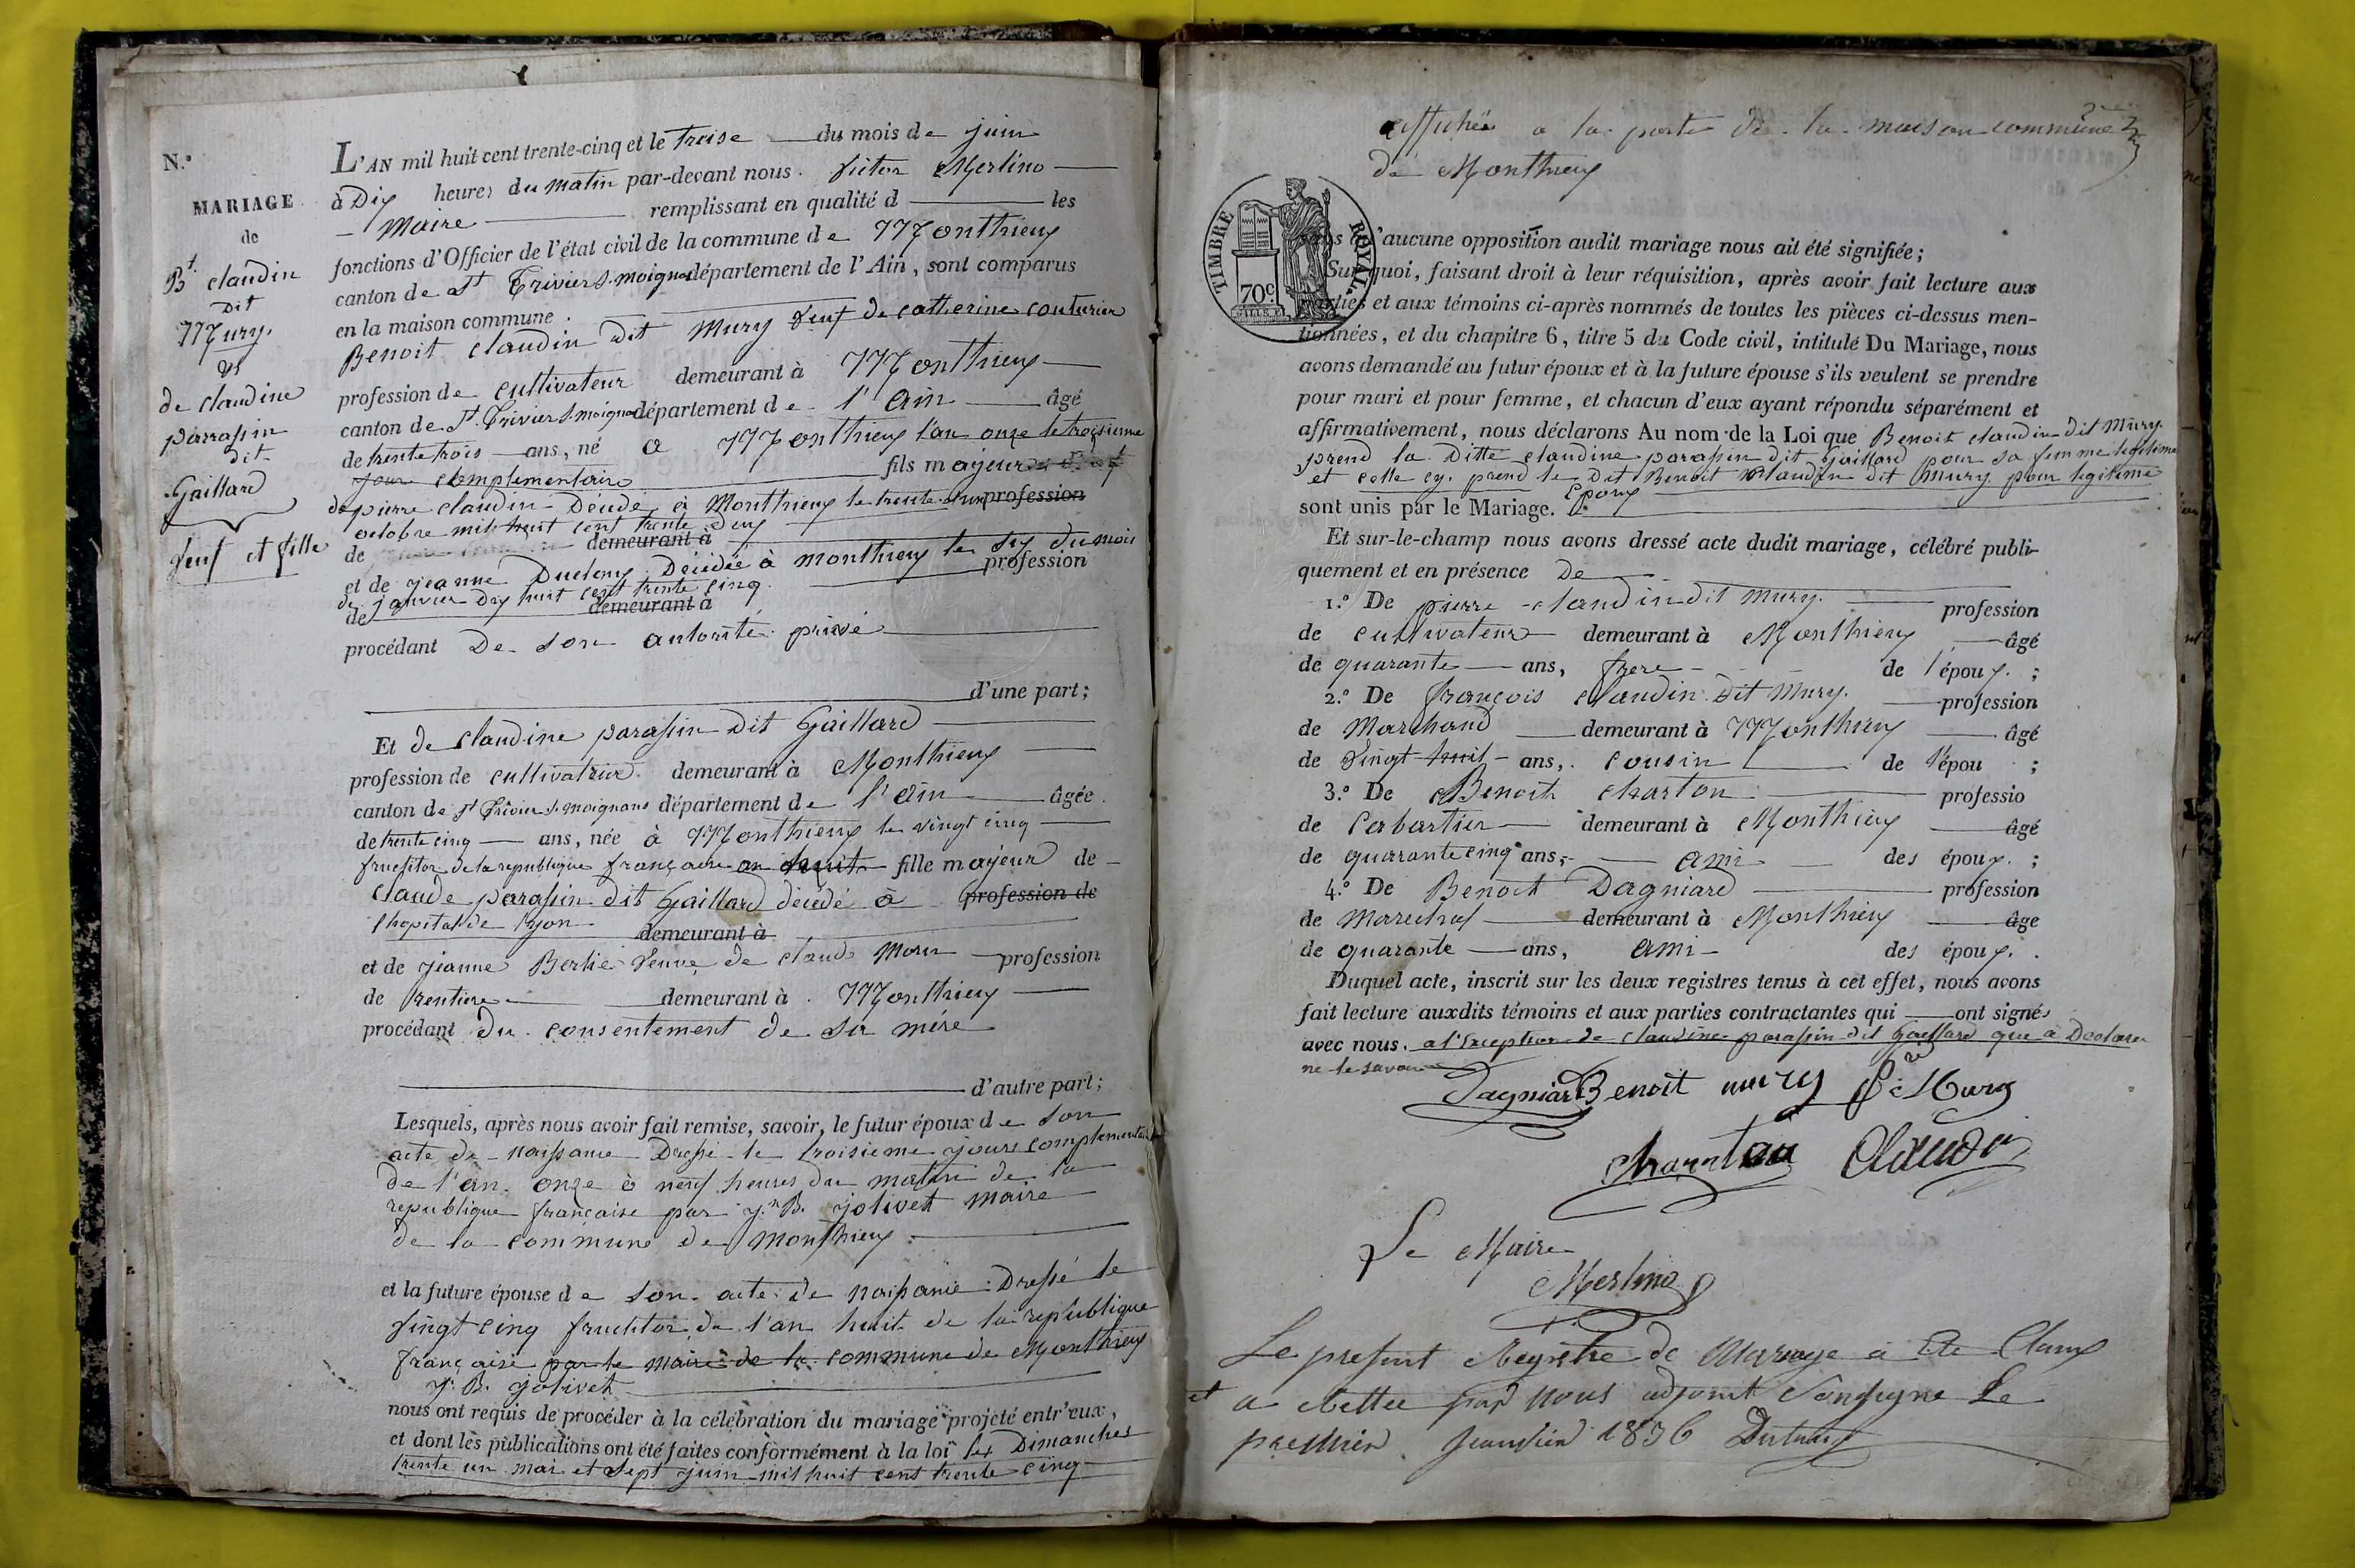 N.º
MARIAGE
de
Bt claudin
Dit
Mury.
et
de claudine
parassin
dit
Gaillard
veuf et fille
L'AN mil huit cent trente-cinq et le treise du mois de juin
à Dix heures du matin par-devant nous. Victor Merlino
Maire remplissant en qualité d les
fonctions d'Officier de l'état civil de la commune de Monthieux
canton de St Trivier s. moignans département de l'Ain, sont comparus
en la maison commune.
Benoit claudin dit Mury veuf de catherine couturier
profession de cultivateur demeurant à Monthieux
canton de St. Trivier s. moignans département de l'Ain âgé
de trente trois ans, né a Monthieux l'an onze le troisieme
jour complementaire fils majeur
de pierre claudin Décédé à Monthieux le trente profession
octobre mil huit cent trente deux
de demeurant à
et de jeanne Ducloux Décédée à monthieux le six du mois profession
de janvier dix huit cent trente cinq.
de demeurant à
procédant De son autorité privé
d'une part;
Et de claudine parassin Dit Gaillard
profession de cultivatrice demeurant à Monthieux
canton de St Trivier s. moignans département de l'Ain âgée
de trente cinq ans, née à Monthieux le vingt cinq
fructitor de la republique française an huit fille majeur de
claude parassin dit Gaillard décédé à profession de
l'hopital de lyon demeurant à
et de jeanne Berlie veuve de claude profession
de rentiere demeurant à Monthieux
procédant du consentement de sa mére
d'autre part;
Lesquels, après nous avoir fait remise, savoir, le futur époux de son
acte de naissance Dressé le troisieme jours complementaire
de l'an onze à neuf heures du matin de la
republique française par j.n B. jolivet maire
de la commune de Monthieux.
et la future épouse de son acte de naissance Dressé le
vingt cinq fructitor de l'an huit de la republique
française par le maire de la commune de Monthieux
j. B. jolivet
nous ont requis de procéder à la célébration du mariage projeté entr'eux,
et dont les publications ont été faites conformément à la loi les Dimanches
trente un mai et sept juin mil huit cent trente cinq
affichée a la porte de la maison commune
de Monthieux
TIMBRE ROYAL
70c.
qu'aucune opposition audit mariage nous ait été signifiée;
Sur quoi, faisant droit à leur réquisition, après avoir fait lecture aux
parties et aux témoins ci-après nommés de toutes les pièces ci-dessus men-
tionnées, et du chapitre 6, titre 5 du Code civil, intitulé Du Mariage, nous
avons demandé au futur époux et à la future épouse s'ils veulent se prendre
pour mari et pour femme, et chacun d'eux ayant répondu séparément et
affirmativement, nous déclarons Au nom de la Loi que Benoit claudin dit Mury.
prend la Ditte claudine parassin dit Gaillard pour sa femme legitime
et celle cy. prend le Dit Benoit claudin dit Mury pour legitime
Epoux
sont unis par le Mariage.
Et sur-le-champ nous avons dressé acte dudit mariage, célébré publi-
quement et en présence De
1.º De pierre claudin dit Mury. profession
de cultivateur demeurant à Monthieux âgé
de quarante ans, frere de l'époux. ;
2.º De françois claudin Dit Mury. profession
de Marchand demeurant à Monthieux âgé
de vingt huit ans, cousin de l'épou ;
3.º De Benoit charton professio
de Cabartier demeurant à Monthieux âgé
de quarante cinq ans, ami des époux. ;
4.º De Benoit Dagniard profession
de Marechal demeurant à Monthieux âgé
de quarante ans, ami des époux. .
Duquel acte, inscrit sur les deux registres tenus à cet effet, nous avons
fait lecture auxdits témoins et aux parties contractantes qui ont signés
avec nous. a l'Exception de claudine parassin dit Gaillard que a Declarer
ne le savoir
Dagniard Benoit mury Mury
charnton Claudin
Le Maire
Merlino
Le present Registre de Mariage a Ete Clause
et a par nous adjoint Sousigne Le
premier janvier 1836